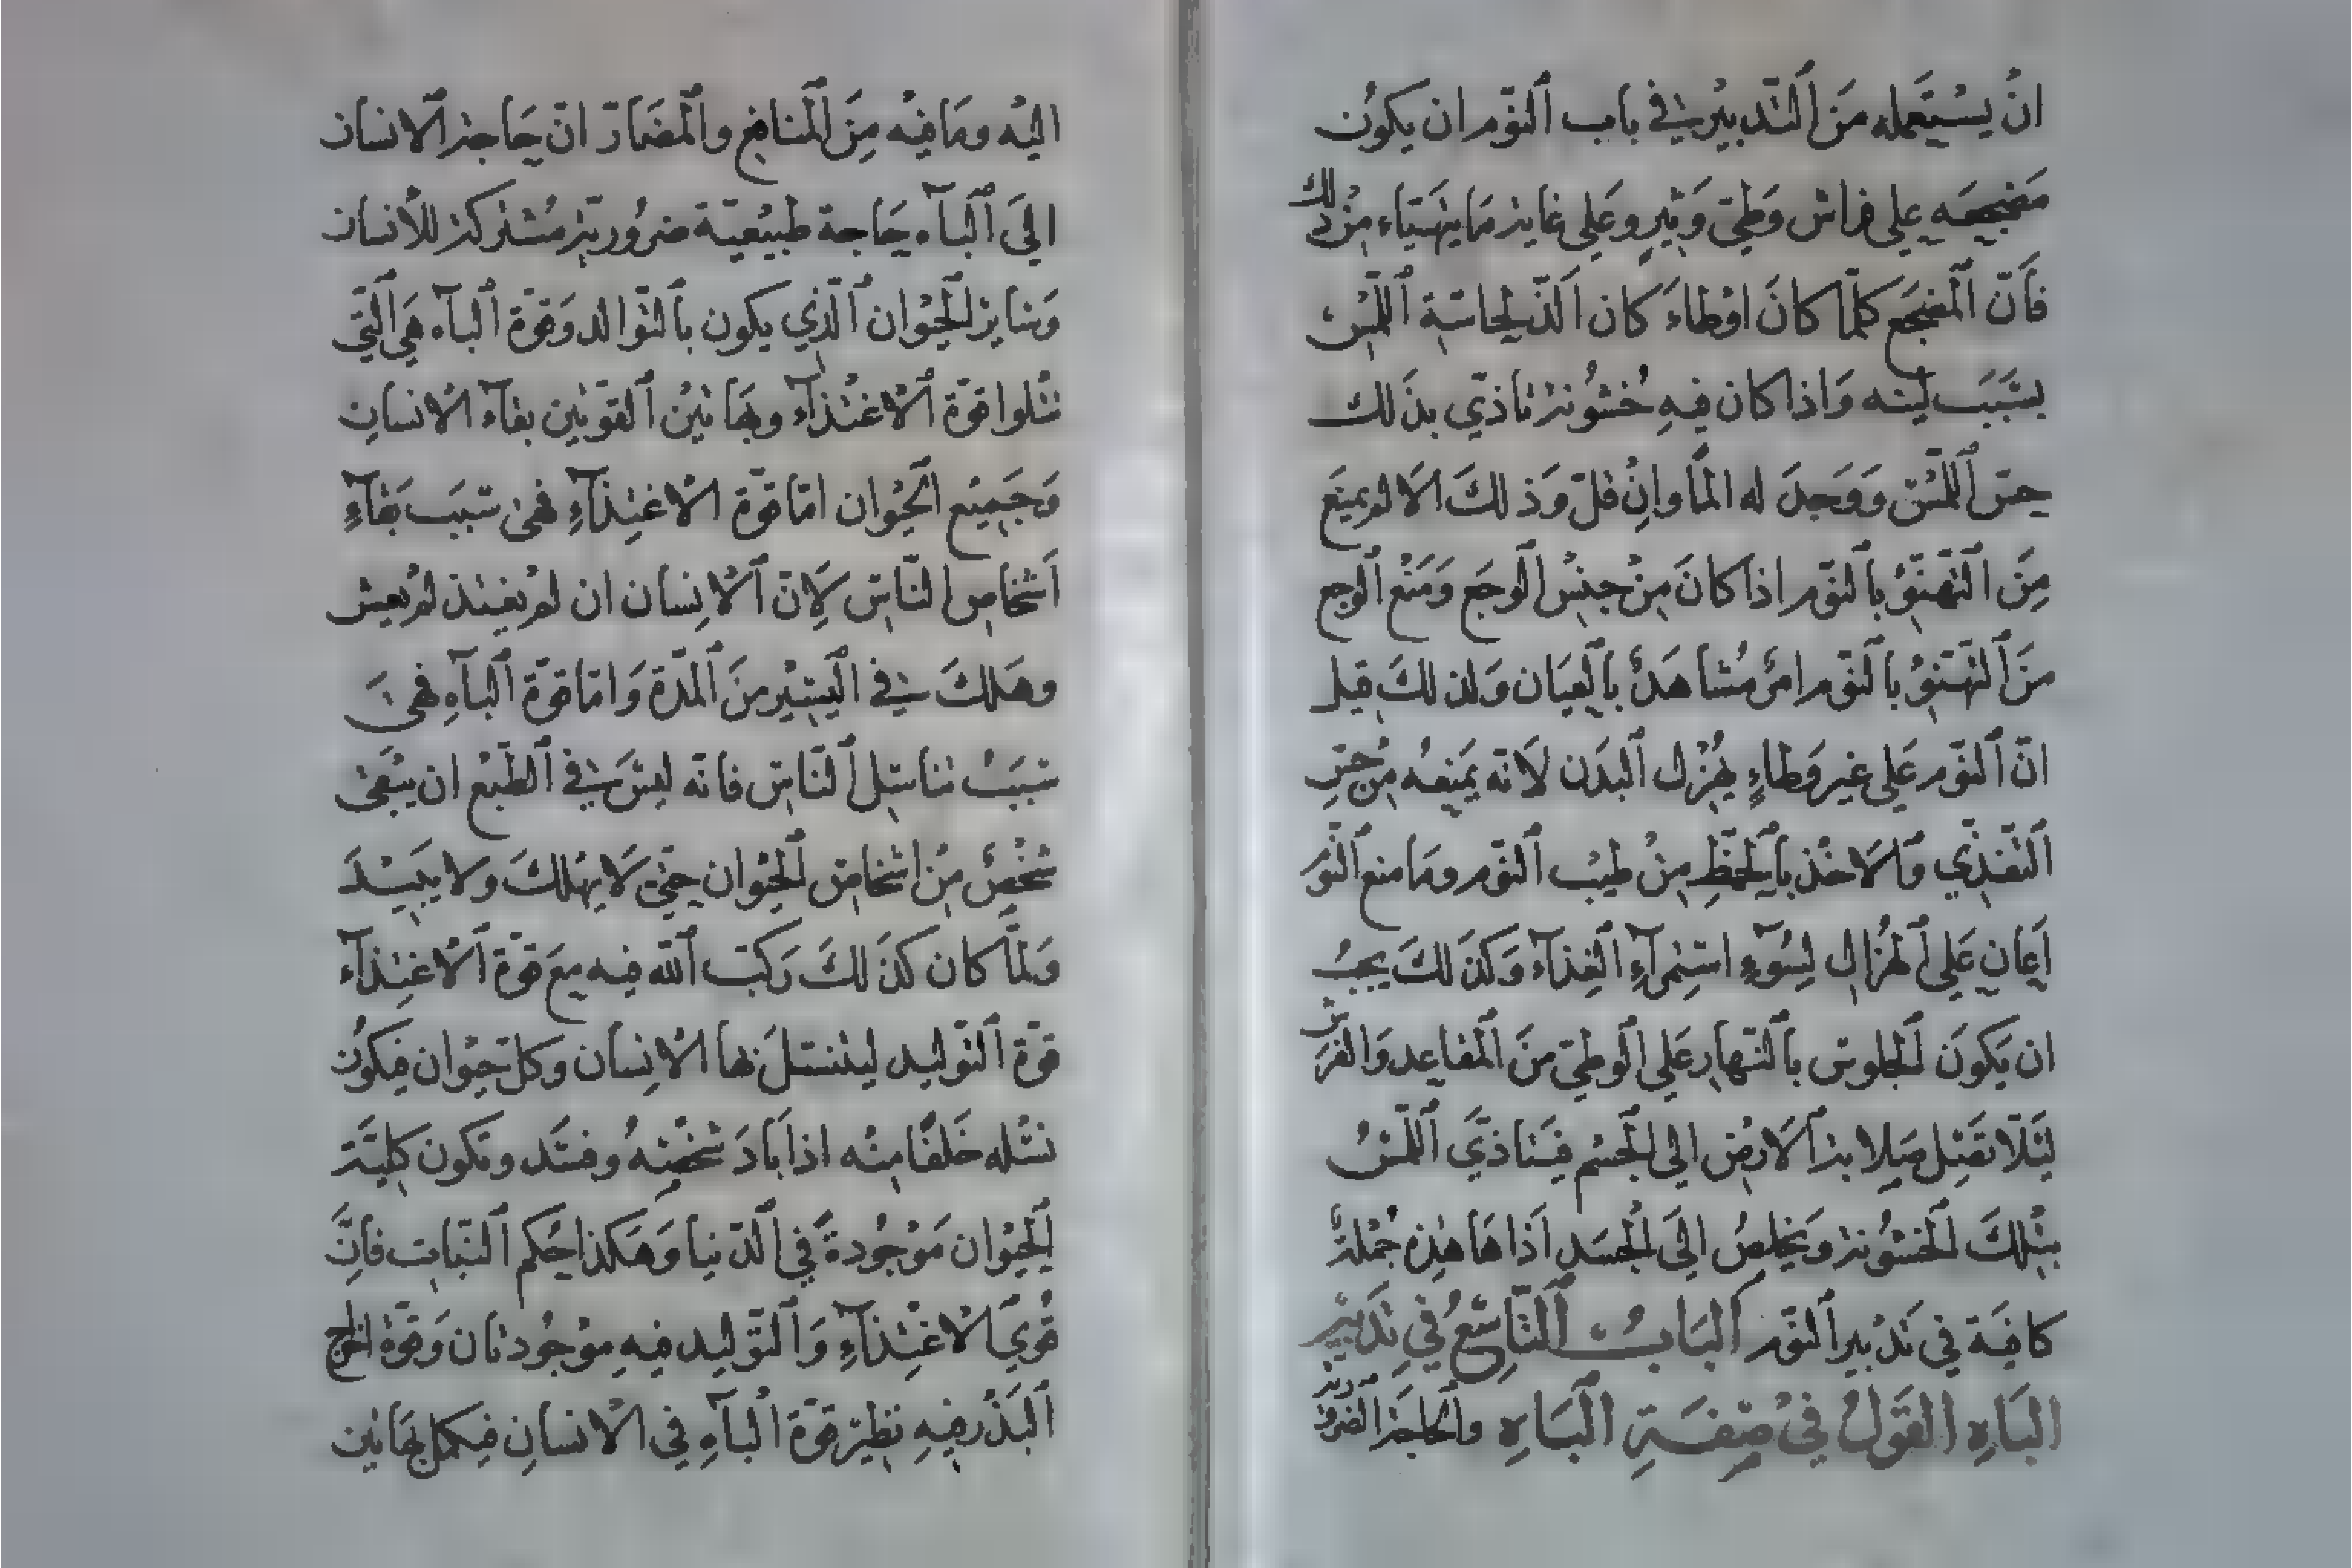 ان يستعمله من التدبير في باب النوم ان يكون
مضجعه على فراش وطئ وثير وعلى غاية ما يتهيّاء من ذلك
فأنّ المضجع كلّما كان اوطاء كان الذّ لحاسّة اللّمس
بسبب لينه واذا كان فيه خشونة تأذّي بذلك
حسّ اللّمس ووجد له المًا وان قلّ وذلك الالم يمنع
من التهنّؤ بالنّوم اذا كان من جنس الوجع ومنع الوجع
من التهنؤ بالنّوم امر مشاهد بالعيان ولذلك قيل
انّ النّوم على غير وطاءٍ يهزل البدن لانّه يمنعه من حسّ
التغذّي والاخذ بالحظّ من طيب النّوم وما منع النّوم
اعان على الهزال لسوء استمراء الغذاء وكذلك يجب
ان يكون الجلوس بالنّهار على الوطئ من المقاعد والفرش
لئلّا تصل صلابة الارض الى الجسم فيتأذّي اللّمس
بتلك الخشونة ويخلص الى الجسد اذاها هذه جملة
كافية في تدبير النّوم الباب التّاسع في تدبير
الباه القول في صفة الباه والحاجة الضرورية
اليه وما فيه من المنافع والمضارّ انّ حاجة الانسان
الى الباء حاجة طبيعيّة ضروريّة مشتركة للأنسان
وسائر الحيوان الّذي يكون بالتّوالد وقوّة الباه هي الّتي
تتلوا قوّة الاغتذاء وبهاتين القوّتين بقاء الانسان
وجميع الحيوان امّا قوّة الاغتذاء فهي سبب بقاء
اشخاص النّاس لانّ الانسان ان لم يغتذ لم يعش
وهلك في اليسير من المدّة وامّا قوّة الباه فهي
سبب تناسل النّاس فانّه ليس في الطّبع ان يبقى
شخص من اشخاص الحيوان حتّى لا يهلك ولا يبيد
ولمّا كان كذلك ركّب الله فيه مع قوّة الاغتذاء
قوّة التّوليد ليتنسّل بها الانسان وكلّ حيوان فيكون
نسله خلفًا منه اذا باد شخصه وفسد وتكون كليّة
الحيوان موجودة في الدّنيا وهكذا حكم النّبات فانّ
قوي الاغتذاء والتّوليد فيه موجودتان وقوّة اخراج
البذر فيه نظير قوّة الباه في الانسان فيكمل بهاتين